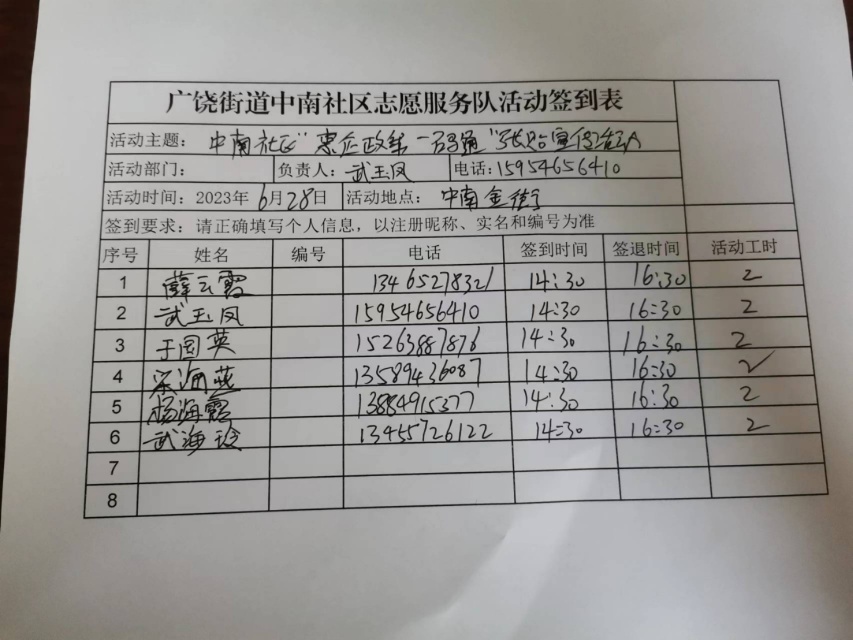 广饶街道中南社区志愿服务队活动签到表
活动主题: 中南社区"惠企政策一码通"张贴宣传活动
活动部门: 负责人: 武玉凤 电话: 15954656410
活动时间: 2023年6月28日 活动地点: 中南金街
签到要求: 请正确填写个人信息, 以注册昵称、实名和编号为准
序号 姓名 编号 电话 签到时间 签退时间 活动工时
1 薛云霞 13465278321 14:30 16:30 2
2 武玉凤 15954656410 14:30 16:30 2
3 于国英 15263887876 14:30 16:30 2
4 海燕 13589436087 14:30 16:30 2
5 杨海霞 13884915377 14:30 16:30 2
6 武海玲 13455726122 14:30 16:30 2
7
8